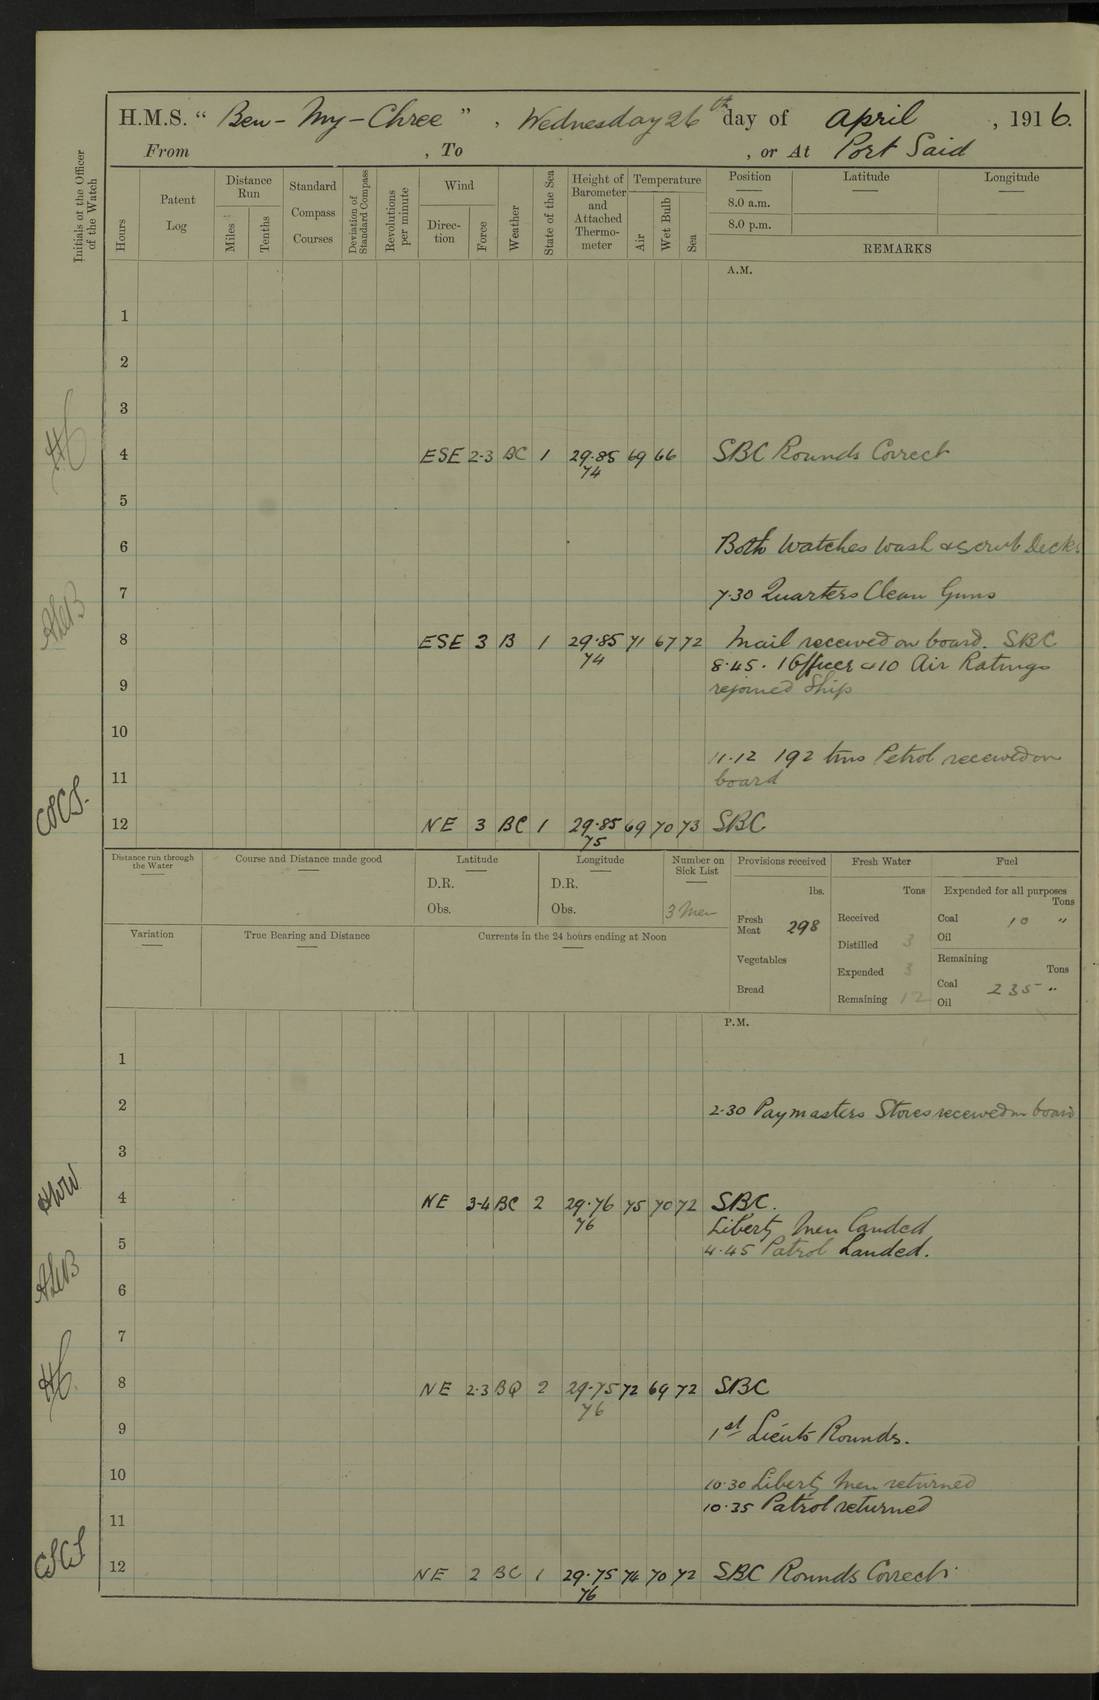 H.M.S. “ Ben-My-Chree ” , Wednesday 26th day of April , 1916.
From , To , or At Port Said
Initials of the Officer of the Watch
Hours
Patent Log
Distance Run
Miles
Tenths
Standard Compass Courses
Deviation of Standard Compass
Revolutions per minute
Wind
Direc-tion
Force
Weather
State of the Sea
Height of Barometer and Attached Thermo-meter
Temperature
Air
Wet Bulb
Sea
Position
8.0 a.m.
8.0 p.m.
Latitude
Longitude
REMARKS
A.M.
1
2
3
4 ESE 2-3 BC 1 29.85 69 66 SBC Rounds Correct
74
5
6 Both Watches Wash & Scrub Decks
7 7.30 Quarters Clean Guns
8 ESE 3 B 1 29.85 71 67 72 Mail received on board. SBC
74 8.45. 1 Officer & 10 Air Ratings
9 rejoined Ship
10
11.12 192 tins Petrol received on
11 board
12 NE 3 BC 1 29.85 69 70 73 SBC
75
Distance run through the Water
Course and Distance made good
Latitude
D.R.
Obs.
Longitude
D.R.
Obs.
Number on Sick List
3 Men
Provisions received
lbs.
Fresh Meat 298
Vegetables
Bread
Fresh Water
Tons
Received
Distilled 3
Expended 3
Remaining 12
Fuel
Expended for all purposes
Tons
Coal 10 "
Oil
Remaining
Tons
Coal 235 "
Oil
Variation
True Bearing and Distance
Currents in the 24 hours ending at Noon
P.M.
1
2 2.30 Paymasters Stores received on board
3
4 NE 3-4 BC 2 29.76 75 70 72 SBC.
76 Liberty Men landed
5 4.45 Patrol Landed.
6
7
8 NE 2-3 BQ 2 29.75 72 69 72 SBC
76
9 1st Lieuts Rounds.
10 10.30 Liberty Men returned
10.35 Patrol returned
11
12 NE 2 BC 1 29.75 74 70 72 SBC Rounds Correct.
76